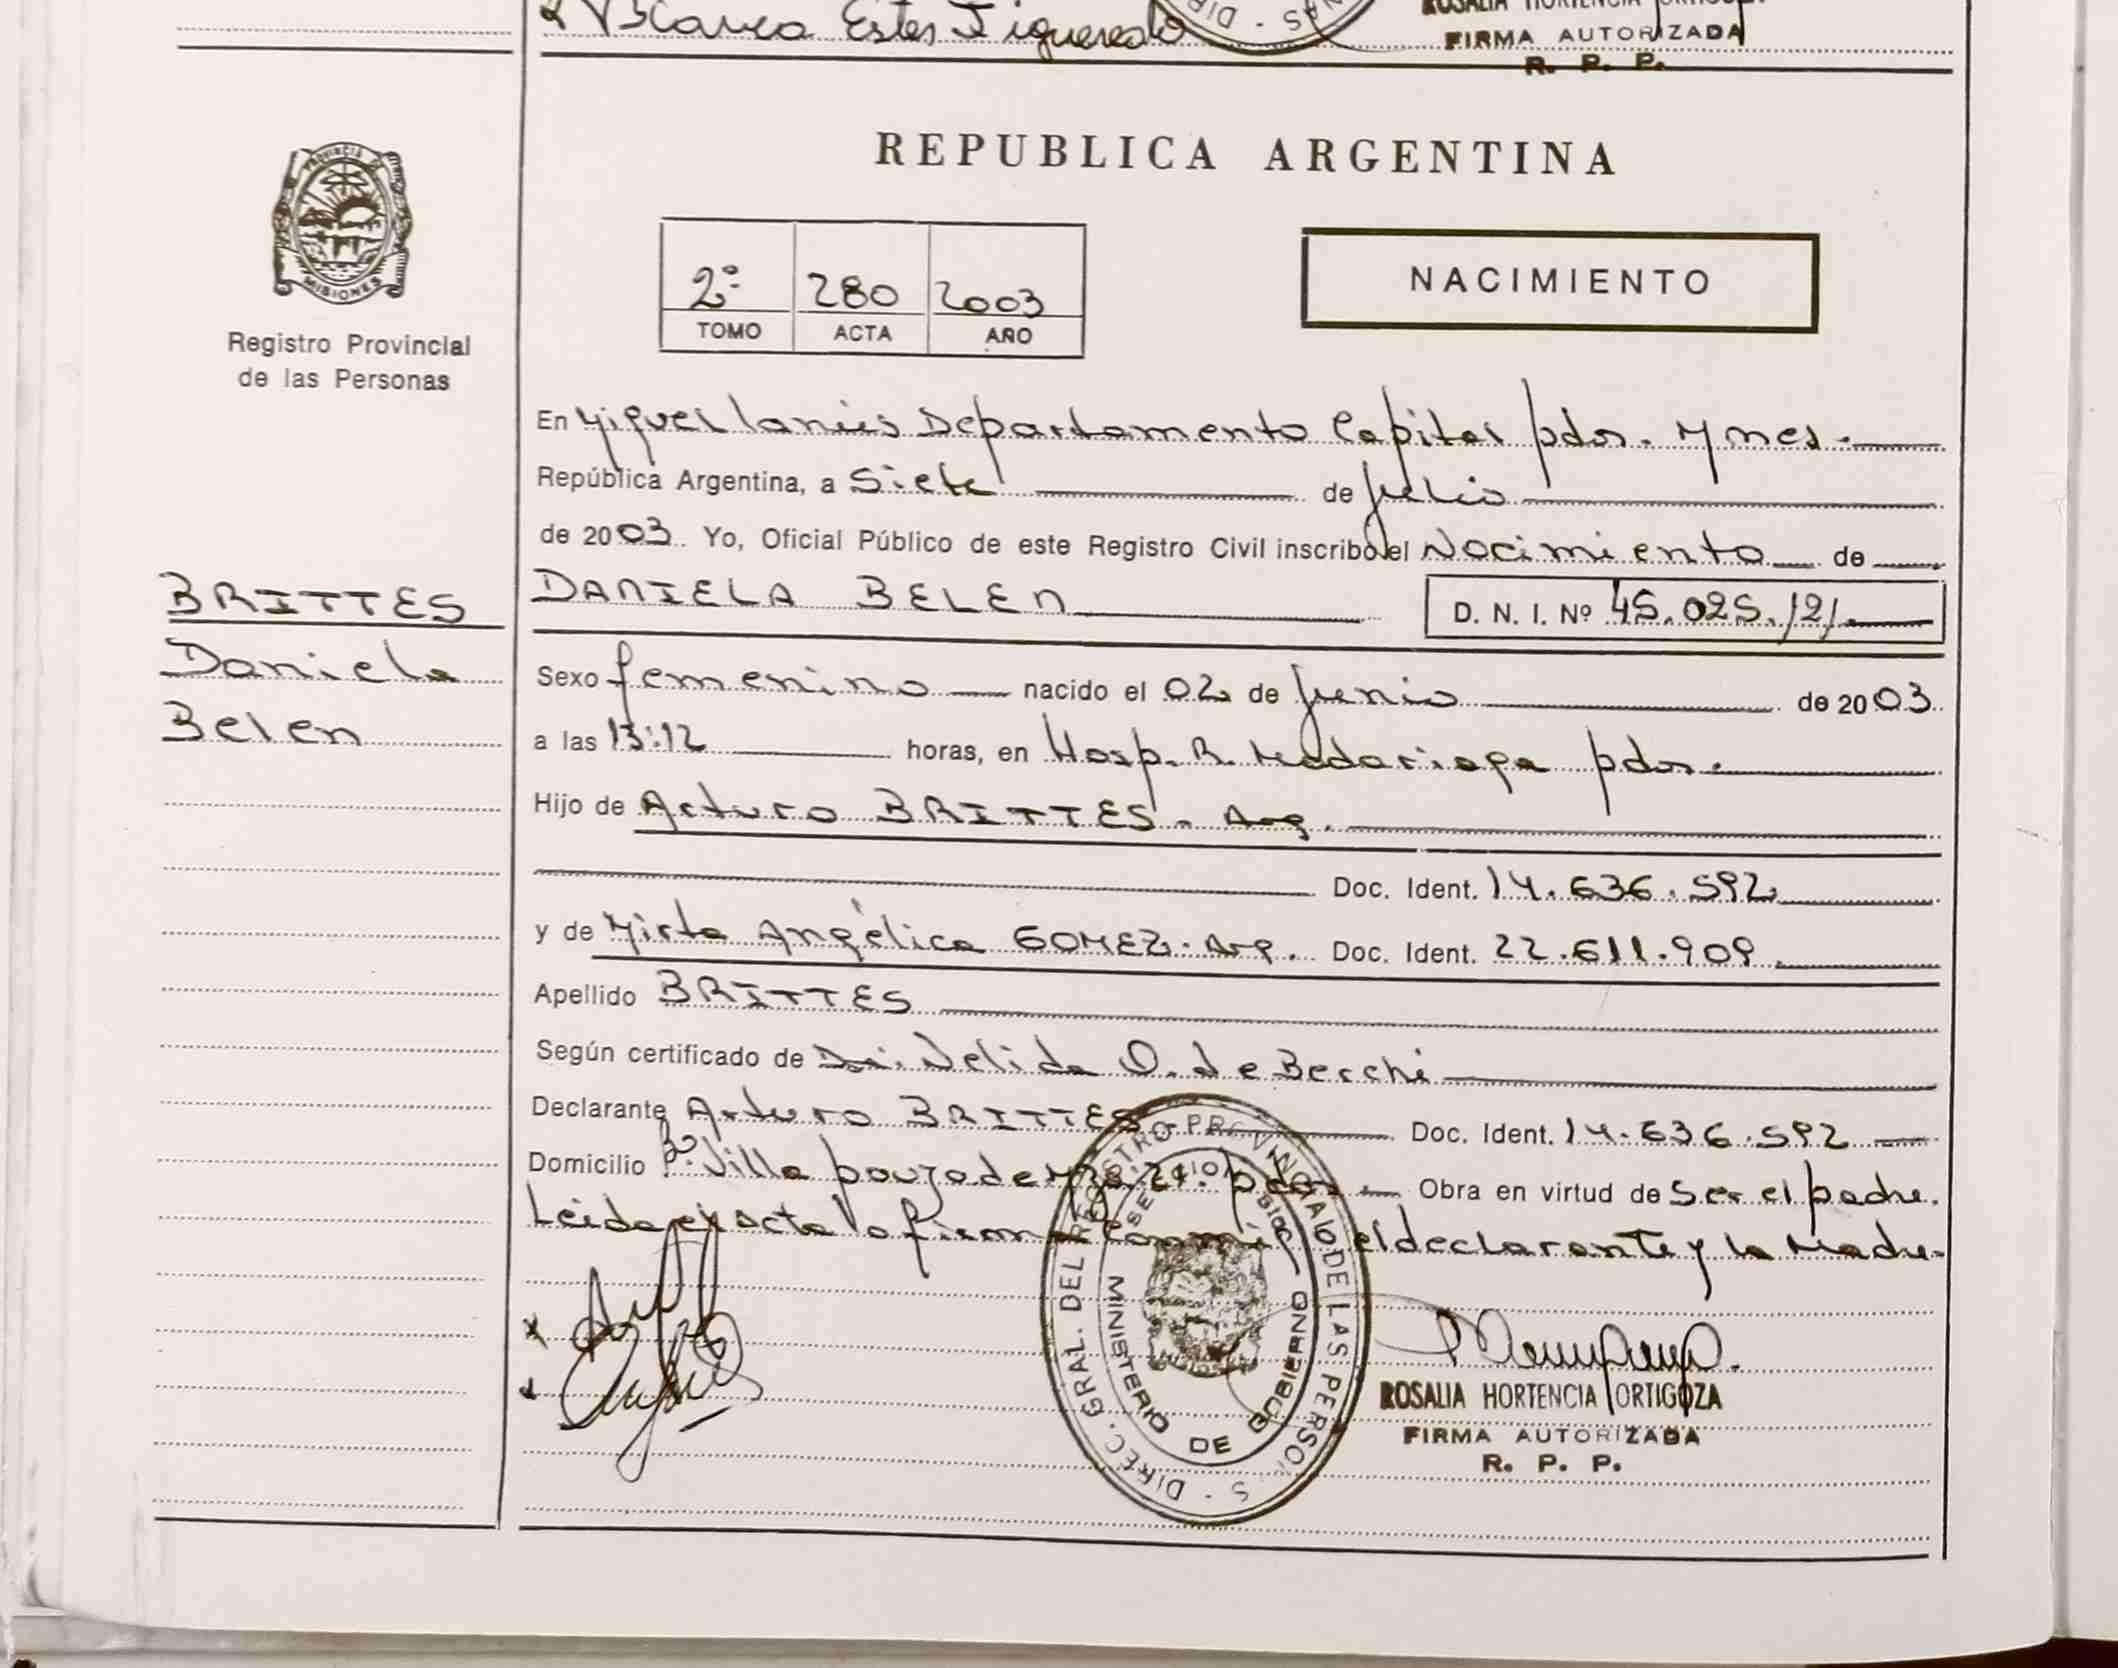 Blanca Ester Figueredo
FIRMA AUTORIZADA
R. P. P.
PROVINCIA DE
MISIONES
Registro Provincial
de las Personas
REPUBLICA ARGENTINA
2º 280 2003
TOMO ACTA AÑO
NACIMIENTO
En Miguel Lanús Departamento Capital pdas. Mnes.
República Argentina, a Siete de Julio
de 2003 Yo, Oficial Público de este Registro Civil inscribo el Nacimiento de
BRITTES
Daniela
Belen
DANIELA BELEN D. N. I. Nº 45.025.121
Sexo femenino nacido el 02 de Junio de 2003
a las 13:12 horas, en Hosp. R. Madariaga pdas.
Hijo de Arturo BRITTES - Arg.
Doc. Ident. 14.636.592
y de Mirta Angélica GOMEZ - Arg. Doc. Ident. 22.611.909
Apellido BRITTES
Según certificado de Nelida O. de Berchi
Declarante Arturo BRITTES Doc. Ident. 14.636.592
Domicilio Bº Villa pdas. Obra en virtud de Ser el padre.
Leida el acta la firman conmigo el declarante y la Madre.
DIREC. GRAL. DEL REGISTRO PROVINCIAL DE LAS PERSONAS
MINISTERIO DE GOBIERNO
ROSALIA HORTENCIA ORTIGOZA
FIRMA AUTORIZADA
R. P. P.